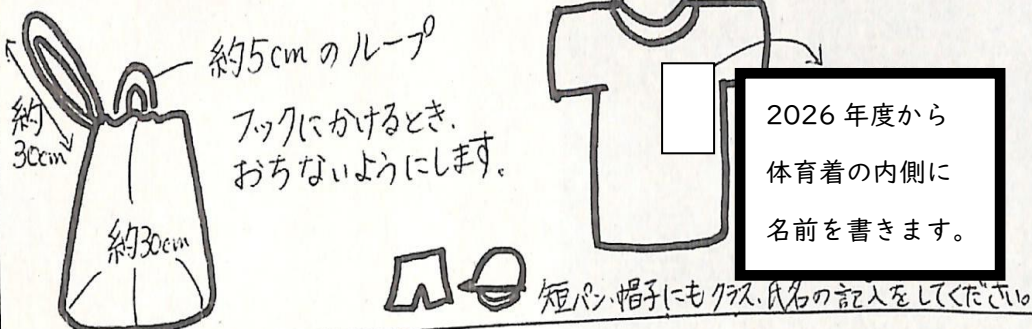 約5cmのループ
フックにかけるとき、
おちないようにします。
約
30cm
約30cm
2026年度から
体育着の内側に
名前を書きます。
短パン・帽子にもクラス、氏名の記入をしてください。